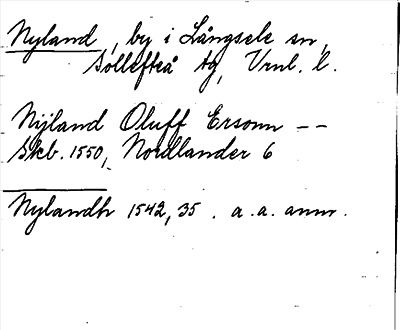 Nyland, by i Långsele sn,
Sollefteå tg, Vrnl. l.
Nijland Oluff Ersonn --
Skb. 1550, Nordlander 6
Nylandh 1542, 35. a. a. anm.